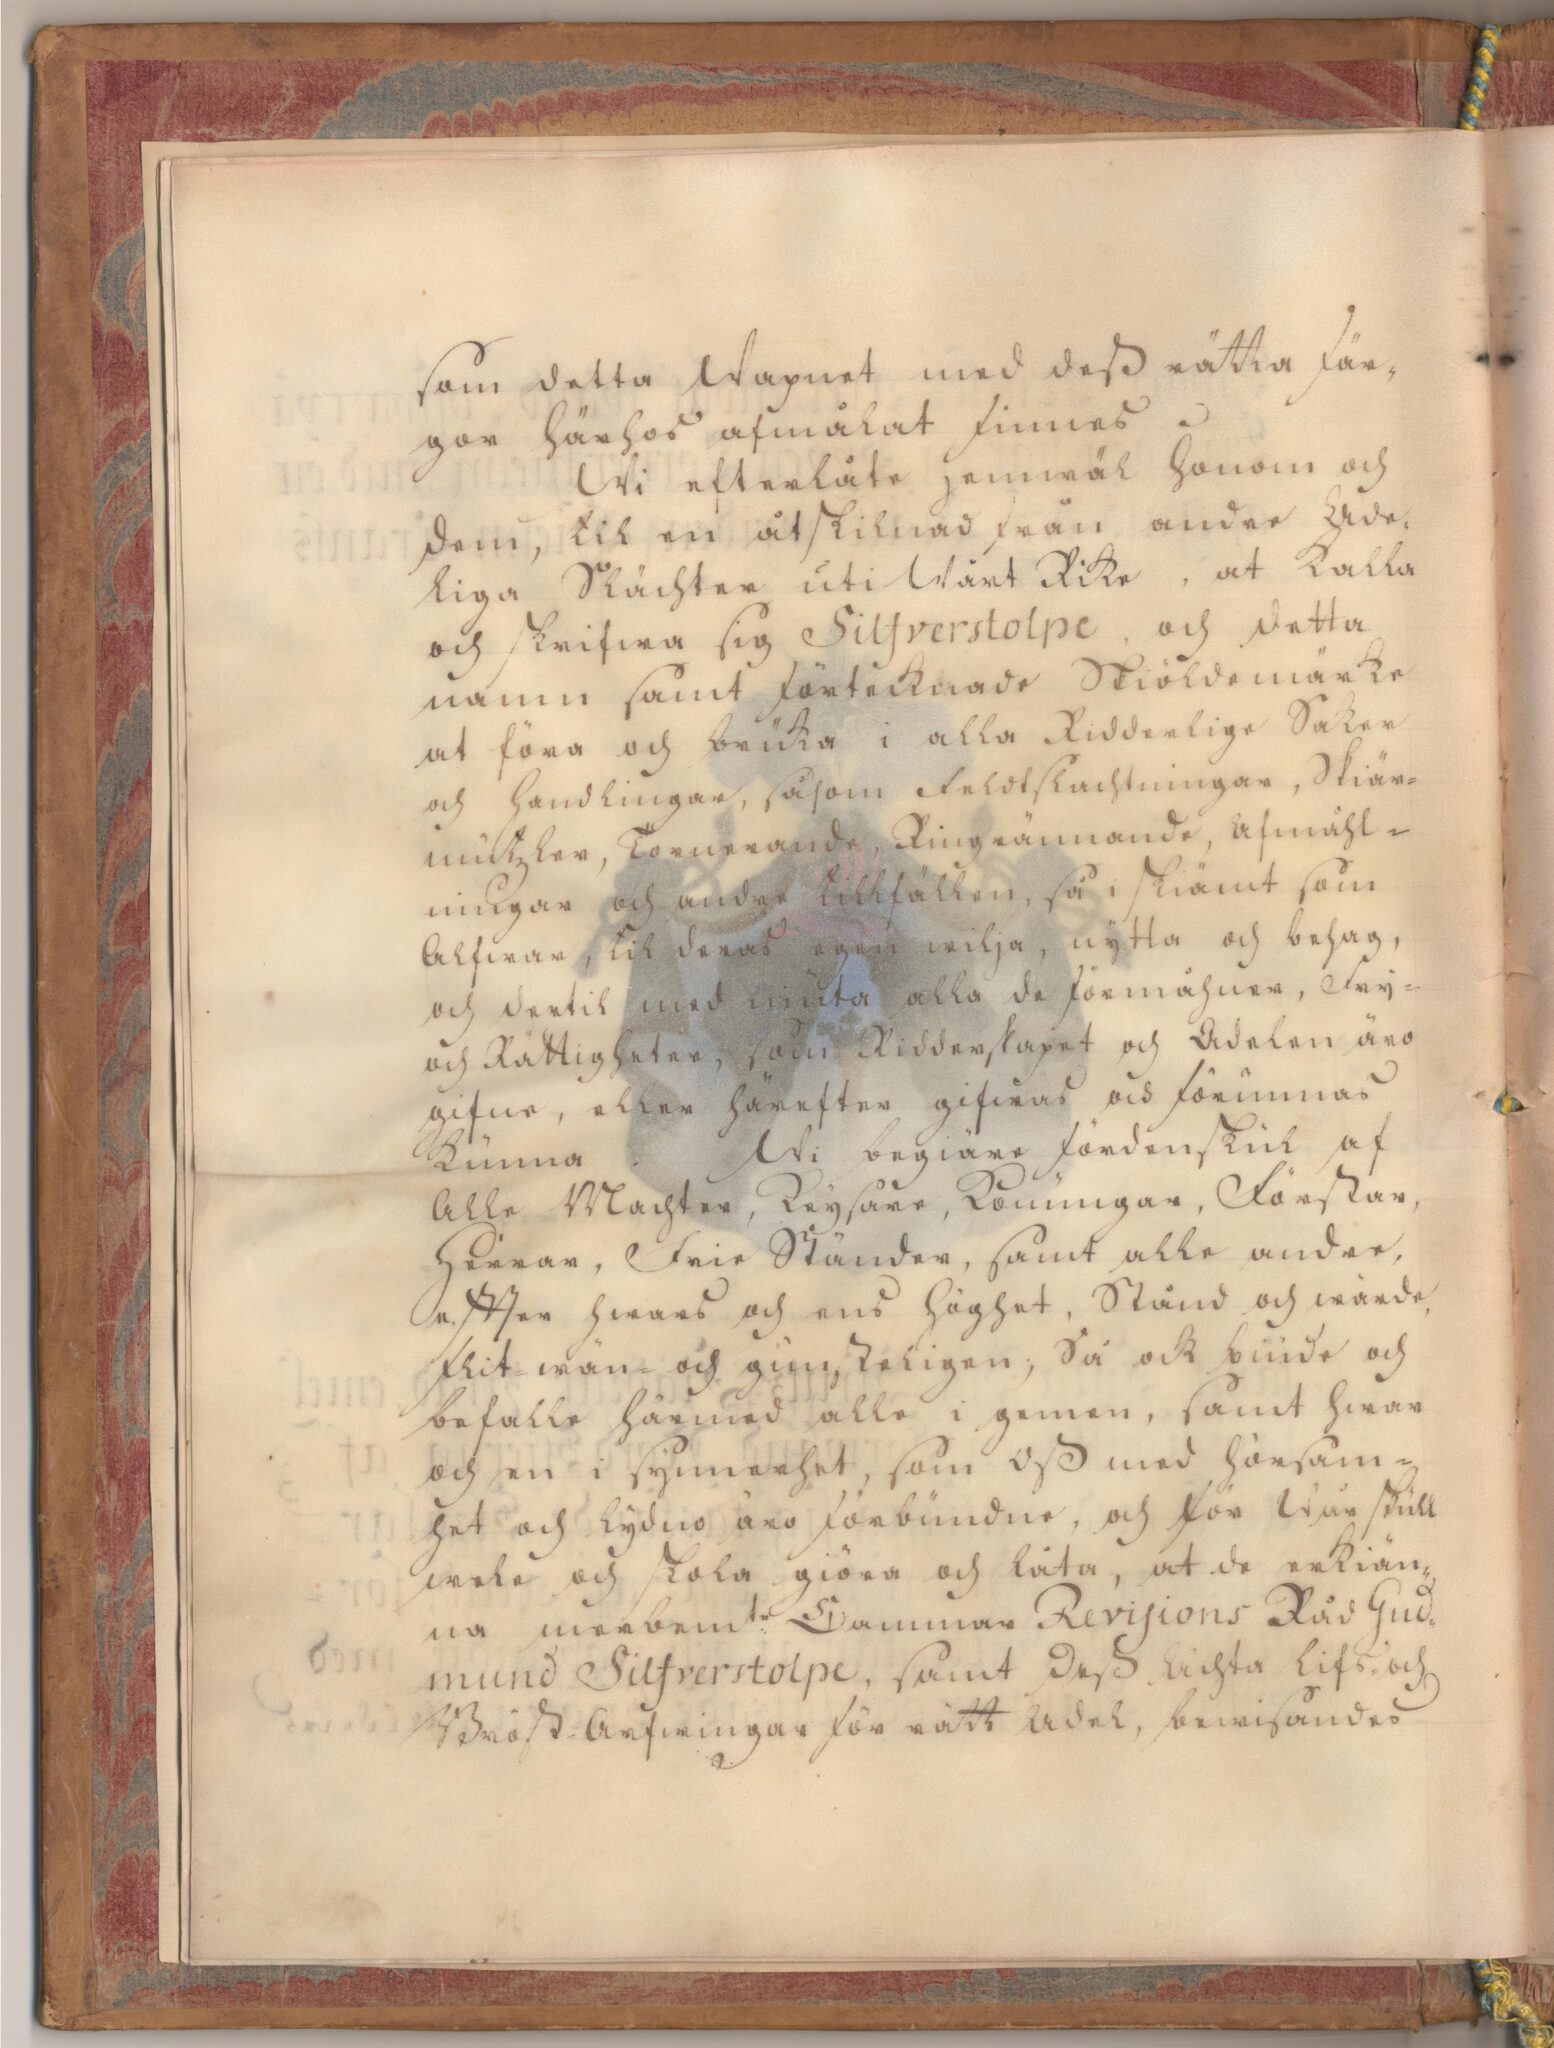 som detta Wapnet med deß rätta Fär-
gor härhos afmålat finnes
Wi efterlåte jemwäl honom och
dem, til en åtskilnad från andre Ade-
liga Slächter uti Wårt Rike, at kalla
och skrifwa sig Silfverstolpe, och detta
namn samt förtecknade Skiöldemärke
at föra och bruka i alla Ridderlige Saker
och Handlingar, såsom Feldtslachtningar, Skiär-
mützler, Tornerande, Ringrännande, Afmåhl-
ningar och andre tillfällen, så i skiämt som
Alfwar, til deras egen wilja, nytta och behag,
och dertil med niuta alla de förmåhner, Fry-
och Rättigheter, som Ridderskapet och Adelen äro
gifne, eller härefter gifwas och förunnas
kunna. Wi begiäre fördenskul af
Alle Machter, Keysare, Konungar, Förstar,
Herrar, Frie Ständer, samt alle andre,
efter hwars och ens höghet, Stånd och wärde,
flit-wän- och gunsteligen; Så ock biude och
befalle härmed alle i gemen, samt hwar
och en i synnerhet, som Oß med hörsam-
het och lydno äro förbundne, och för Wår skull
wele och skola giöra och låta, at de erkiän-
na merbemte Cammar Revisions Råd Gud-
mund Silfverstolpe, samt Deß Ächta lifs-och
Bröst-Arfwingar för rätt Adel, bewisandes